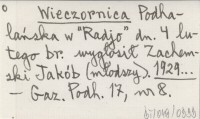 Wieczornica Podha-
lańska w "Radjo" dn. 4 lu-
tego br. wygłosił Zachem-
ski Jakób (młodszy). 1929...
— Gaz. Podh. 17, nr 8.